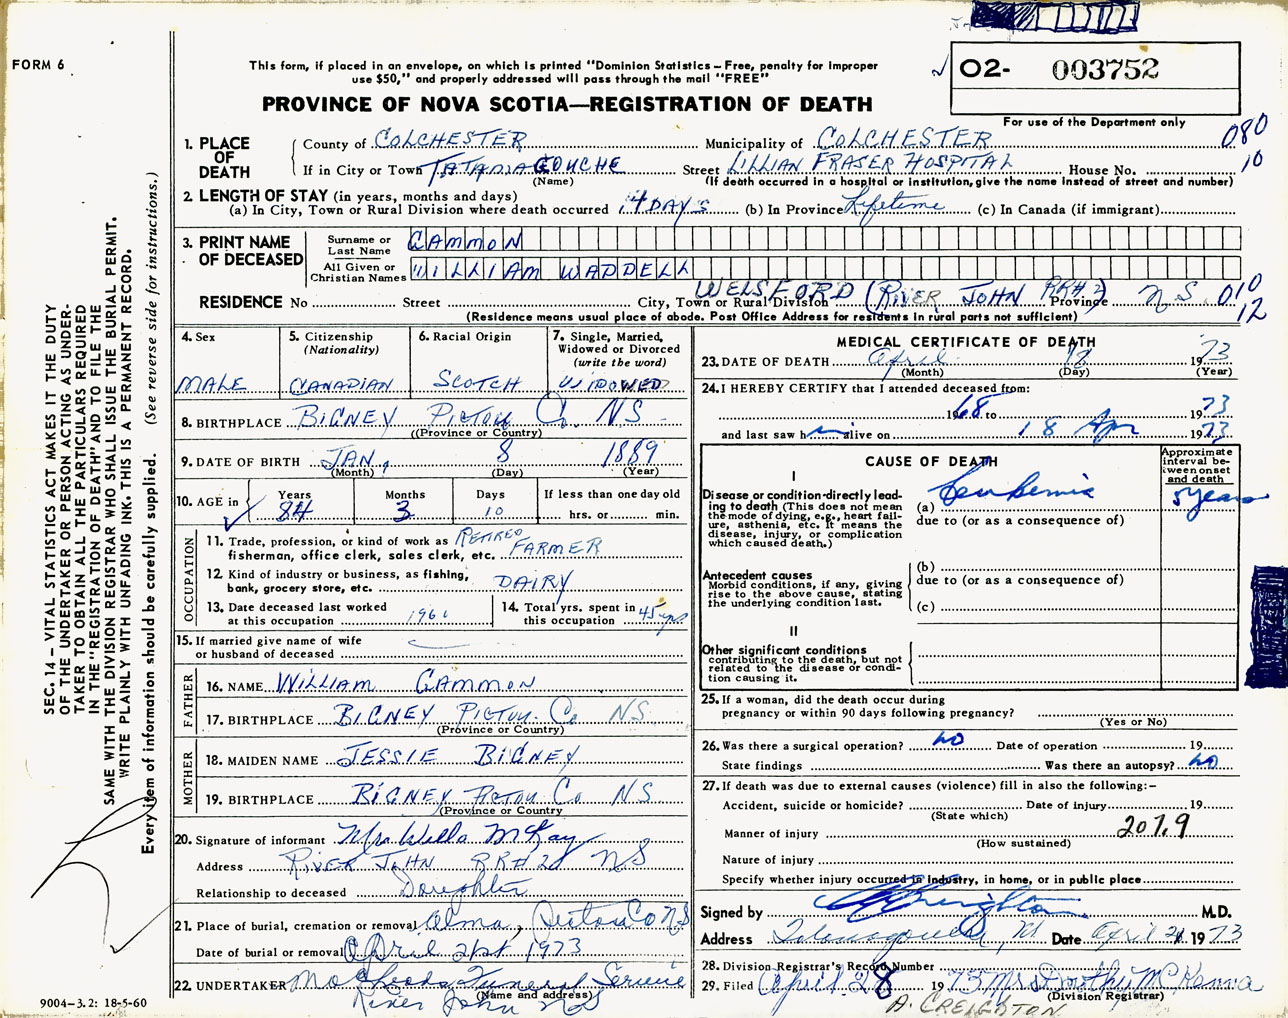 FORM 6
This form, if placed in an envelope, on which is printed "Dominion Statistics – Free, penalty for improper
use $50," and properly addressed will pass through the mail "FREE"
PROVINCE OF NOVA SCOTIA—REGISTRATION OF DEATH
O2- 003752
For use of the Department only
080
10
1. PLACE OF DEATH
County of COLCHESTER Municipality of COLCHESTER
If in City or Town TATAMAGOUCHE Street LILLIAN FRASER HOSPITAL House No.
(Name) (If death occurred in a hospital or institution, give the name instead of street and number)
2. LENGTH OF STAY (in years, months and days)
(a) In City, Town or Rural Division where death occurred 14 DAYS (b) In Province Lifetime (c) In Canada (if immigrant)
3. PRINT NAME OF DECEASED
Surname or Last Name GAMMON
All Given or Christian Names WILLIAM WADDELL
RESIDENCE No Street City, Town or Rural Division WELSFORD (RIVER JOHN RR#2) Province N.S. 010
12
(Residence means usual place of abode. Post Office Address for residents in rural parts not sufficient)
4. Sex MALE
5. Citizenship (Nationality) CANADIAN
6. Racial Origin SCOTCH
7. Single, Married, Widowed or Divorced (write the word) WIDOWED
8. BIRTHPLACE BIGNEY PICTOU Co. NS
(Province or Country)
9. DATE OF BIRTH JAN, 8 1889
(Month) (Day) (Year)
10. AGE in Years 84 Months 3 Days 10 If less than one day old hrs. or min.
OCCUPATION
11. Trade, profession, or kind of work as fisherman, office clerk, sales clerk, etc. RETIRED FARMER
12. Kind of industry or business, as fishing, bank, grocery store, etc. DAIRY
13. Date deceased last worked at this occupation 1961
14. Total yrs. spent in this occupation 45 yrs
15. If married give name of wife or husband of deceased
FATHER
16. NAME WILLIAM GAMMON
17. BIRTHPLACE BIGNEY PICTOU Co NS
(Province or Country)
MOTHER
18. MAIDEN NAME JESSIE BIGNEY
19. BIRTHPLACE BIGNEY PICTOU Co NS
(Province or Country
20. Signature of informant Mrs Wella McKay
Address RIVER JOHN RR#2 NS
Relationship to deceased Daughter
21. Place of burial, cremation or removal Alma, Pictou Co NS
Date of burial or removal April 21st 1973
22. UNDERTAKER Funeral Service
(Name and address)
River John NS
MEDICAL CERTIFICATE OF DEATH
23. DATE OF DEATH April 18 1973
(Month) (Day) (Year)
24. I HEREBY CERTIFY that I attended deceased from:
1968 to 1973
and last saw him alive on 18 Apr 1973
CAUSE OF DEATH
Approximate interval between onset and death
I
Disease or condition directly leading to death (This does not mean the mode of dying, e.g., heart failure, asthenia, etc. It means the disease, injury, or complication which caused death.)
(a) Leukemia 5 years
due to (or as a consequence of)
Antecedent causes
Morbid conditions, if any, giving rise to the above cause, stating the underlying condition last.
(b)
due to (or as a consequence of)
(c)
II
Other significant conditions
contributing to the death, but not related to the disease or condition causing it.
25. If a woman, did the death occur during pregnancy or within 90 days following pregnancy?
(Yes or No)
26. Was there a surgical operation? NO Date of operation 19
State findings Was there an autopsy? NO
27. If death was due to external causes (violence) fill in also the following:–
Accident, suicide or homicide? Date of injury 19
(State which)
Manner of injury 207.9
(How sustained)
Nature of injury
Specify whether injury occurred in industry, in home, or in public place
Signed by M.D.
Address Tatamagouche, NS Date April 1973
28. Division Registrar's Record Number
29. Filed April 28 1973 Mrs Dorothy McKenna
(Division Registrar)
A. CREIGHTON
SEC. 14 – VITAL STATISTICS ACT MAKES IT THE DUTY
OF THE UNDERTAKER OR PERSON ACTING AS UNDER-
TAKER TO OBTAIN ALL THE PARTICULARS REQUIRED
IN THE "REGISTRATION OF DEATH" AND TO FILE THE
SAME WITH THE DIVISION REGISTRAR WHO SHALL ISSUE THE BURIAL PERMIT.
WRITE PLAINLY WITH UNFADING INK. THIS IS A PERMANENT RECORD.
Every item of information should be carefully supplied. (See reverse side for instructions.)
9004–3.2: 18-5-60